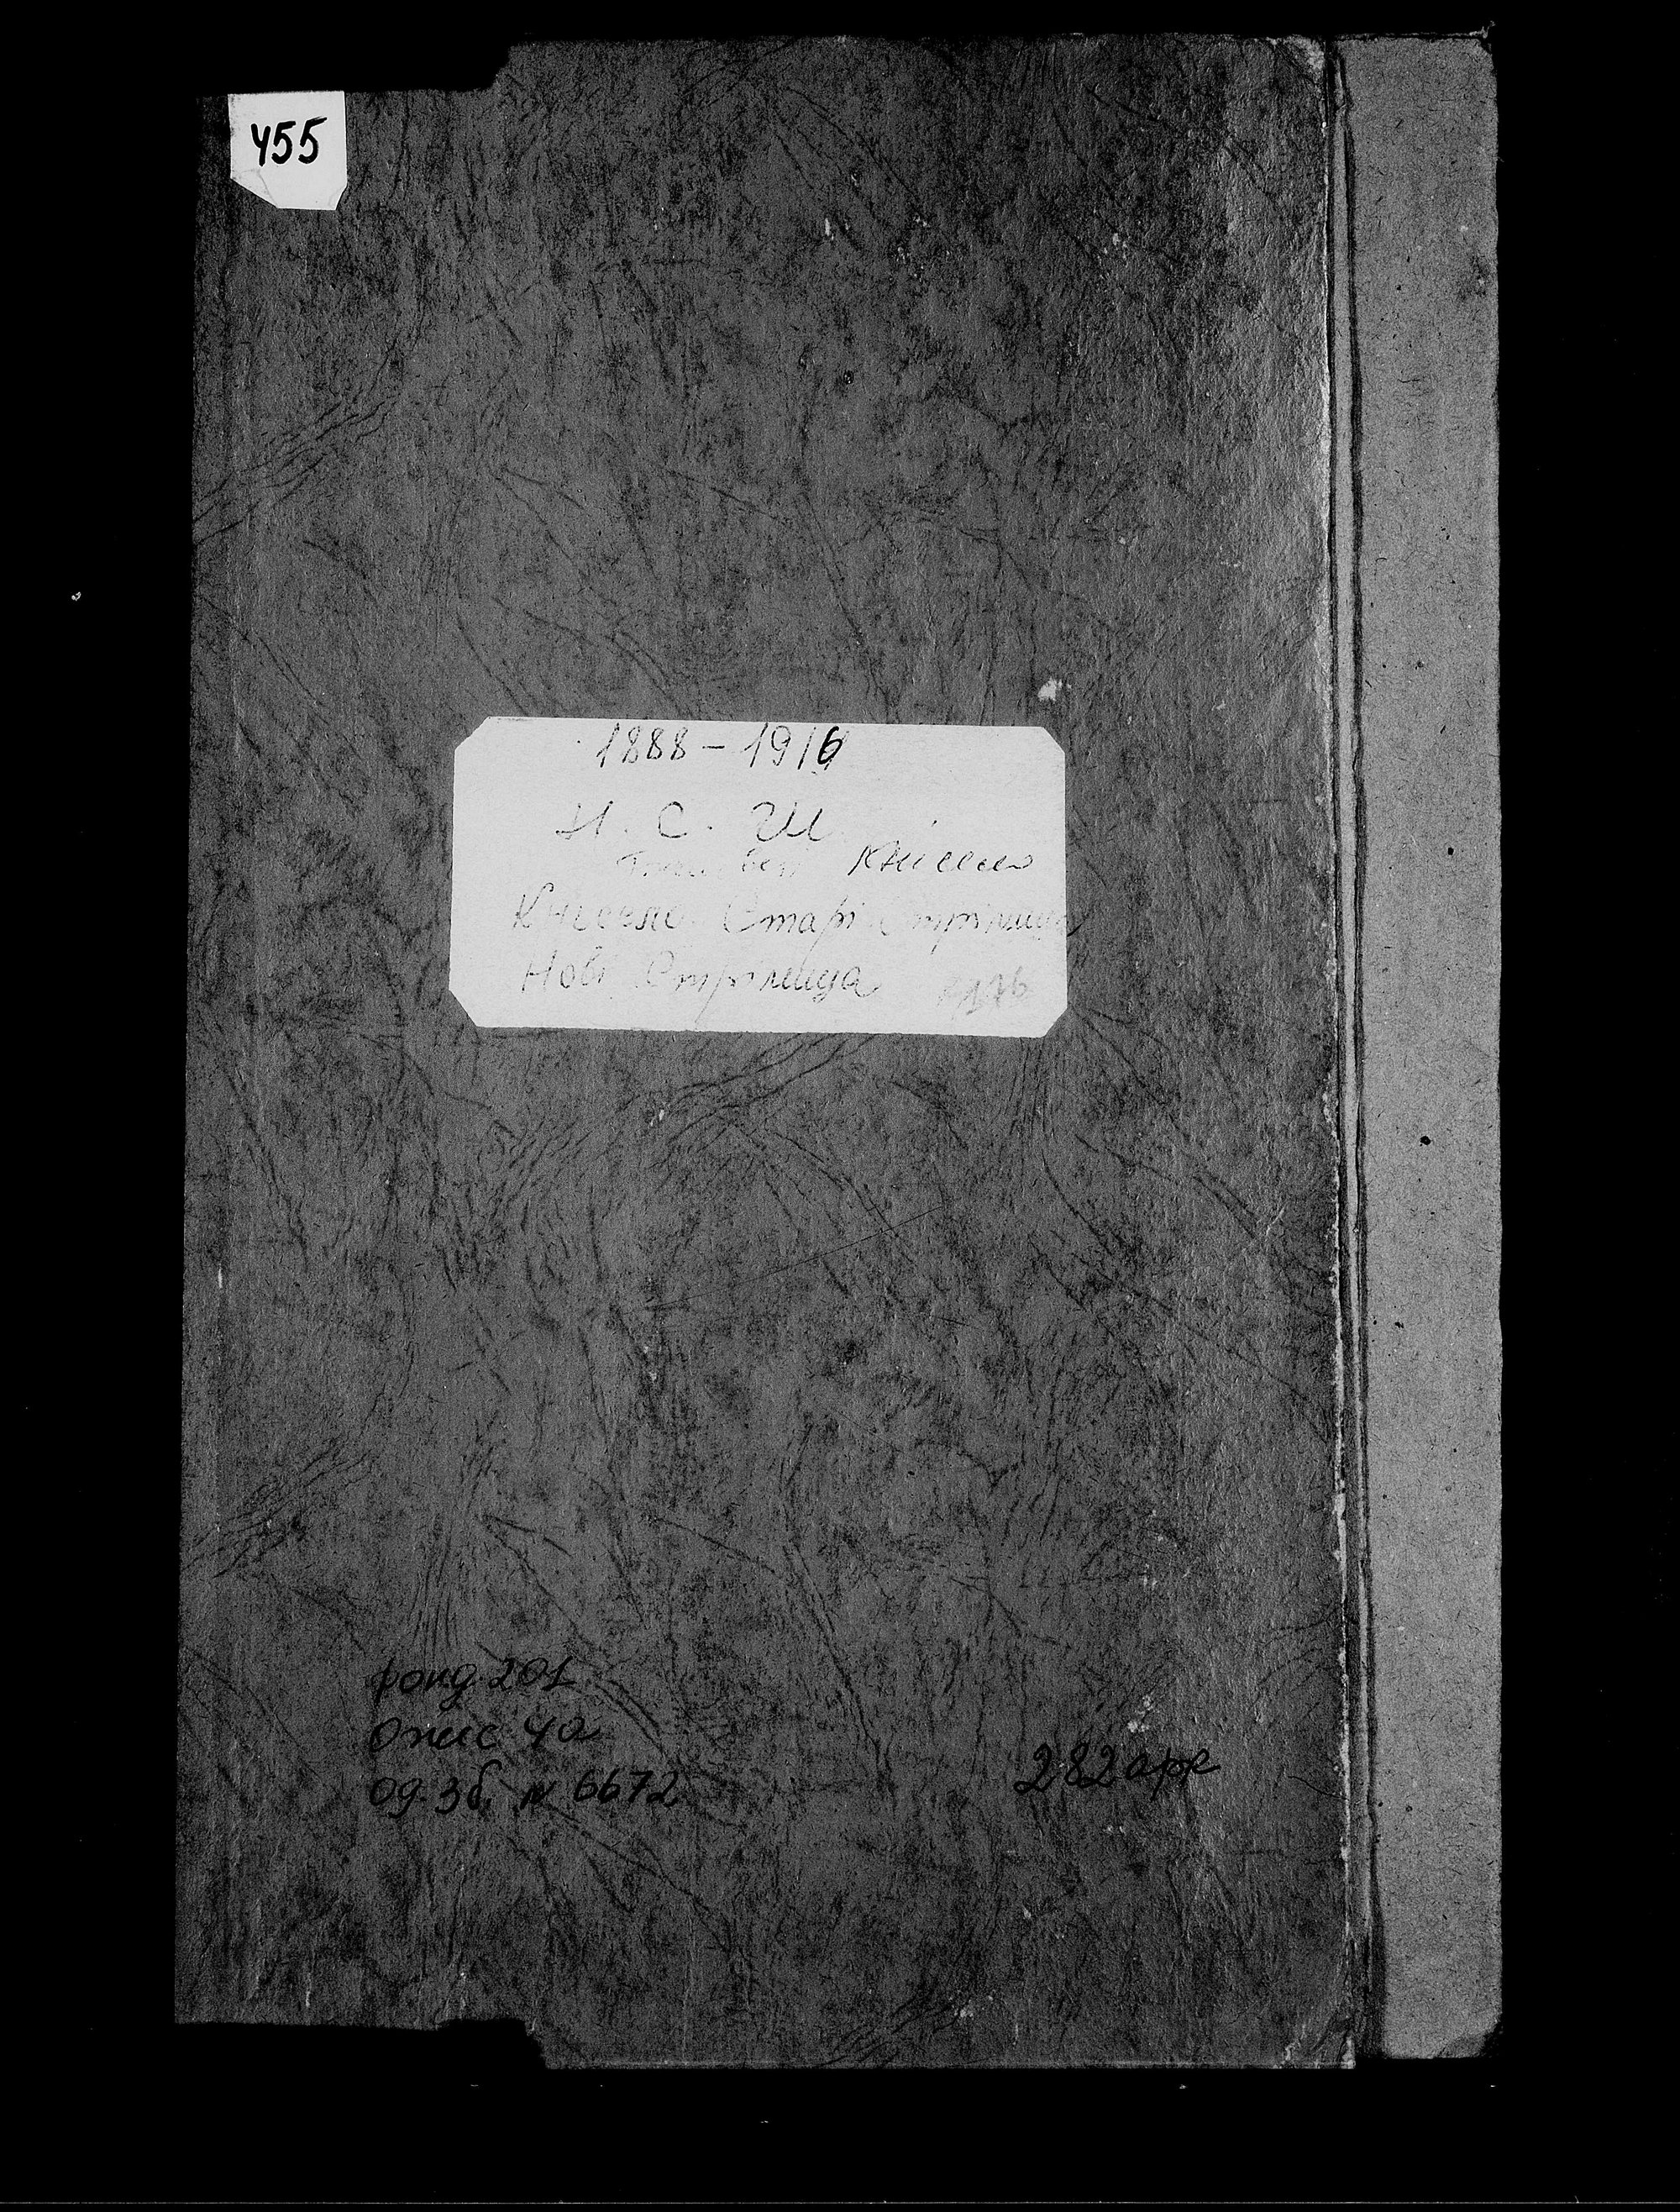 455
1888 – 1916
Н. С. Ш.
Кнісело
Кнісело Старі Стрілища
Нові Стрілища
фонд 201
опис 4а
од. зб. № 6672
282 арк